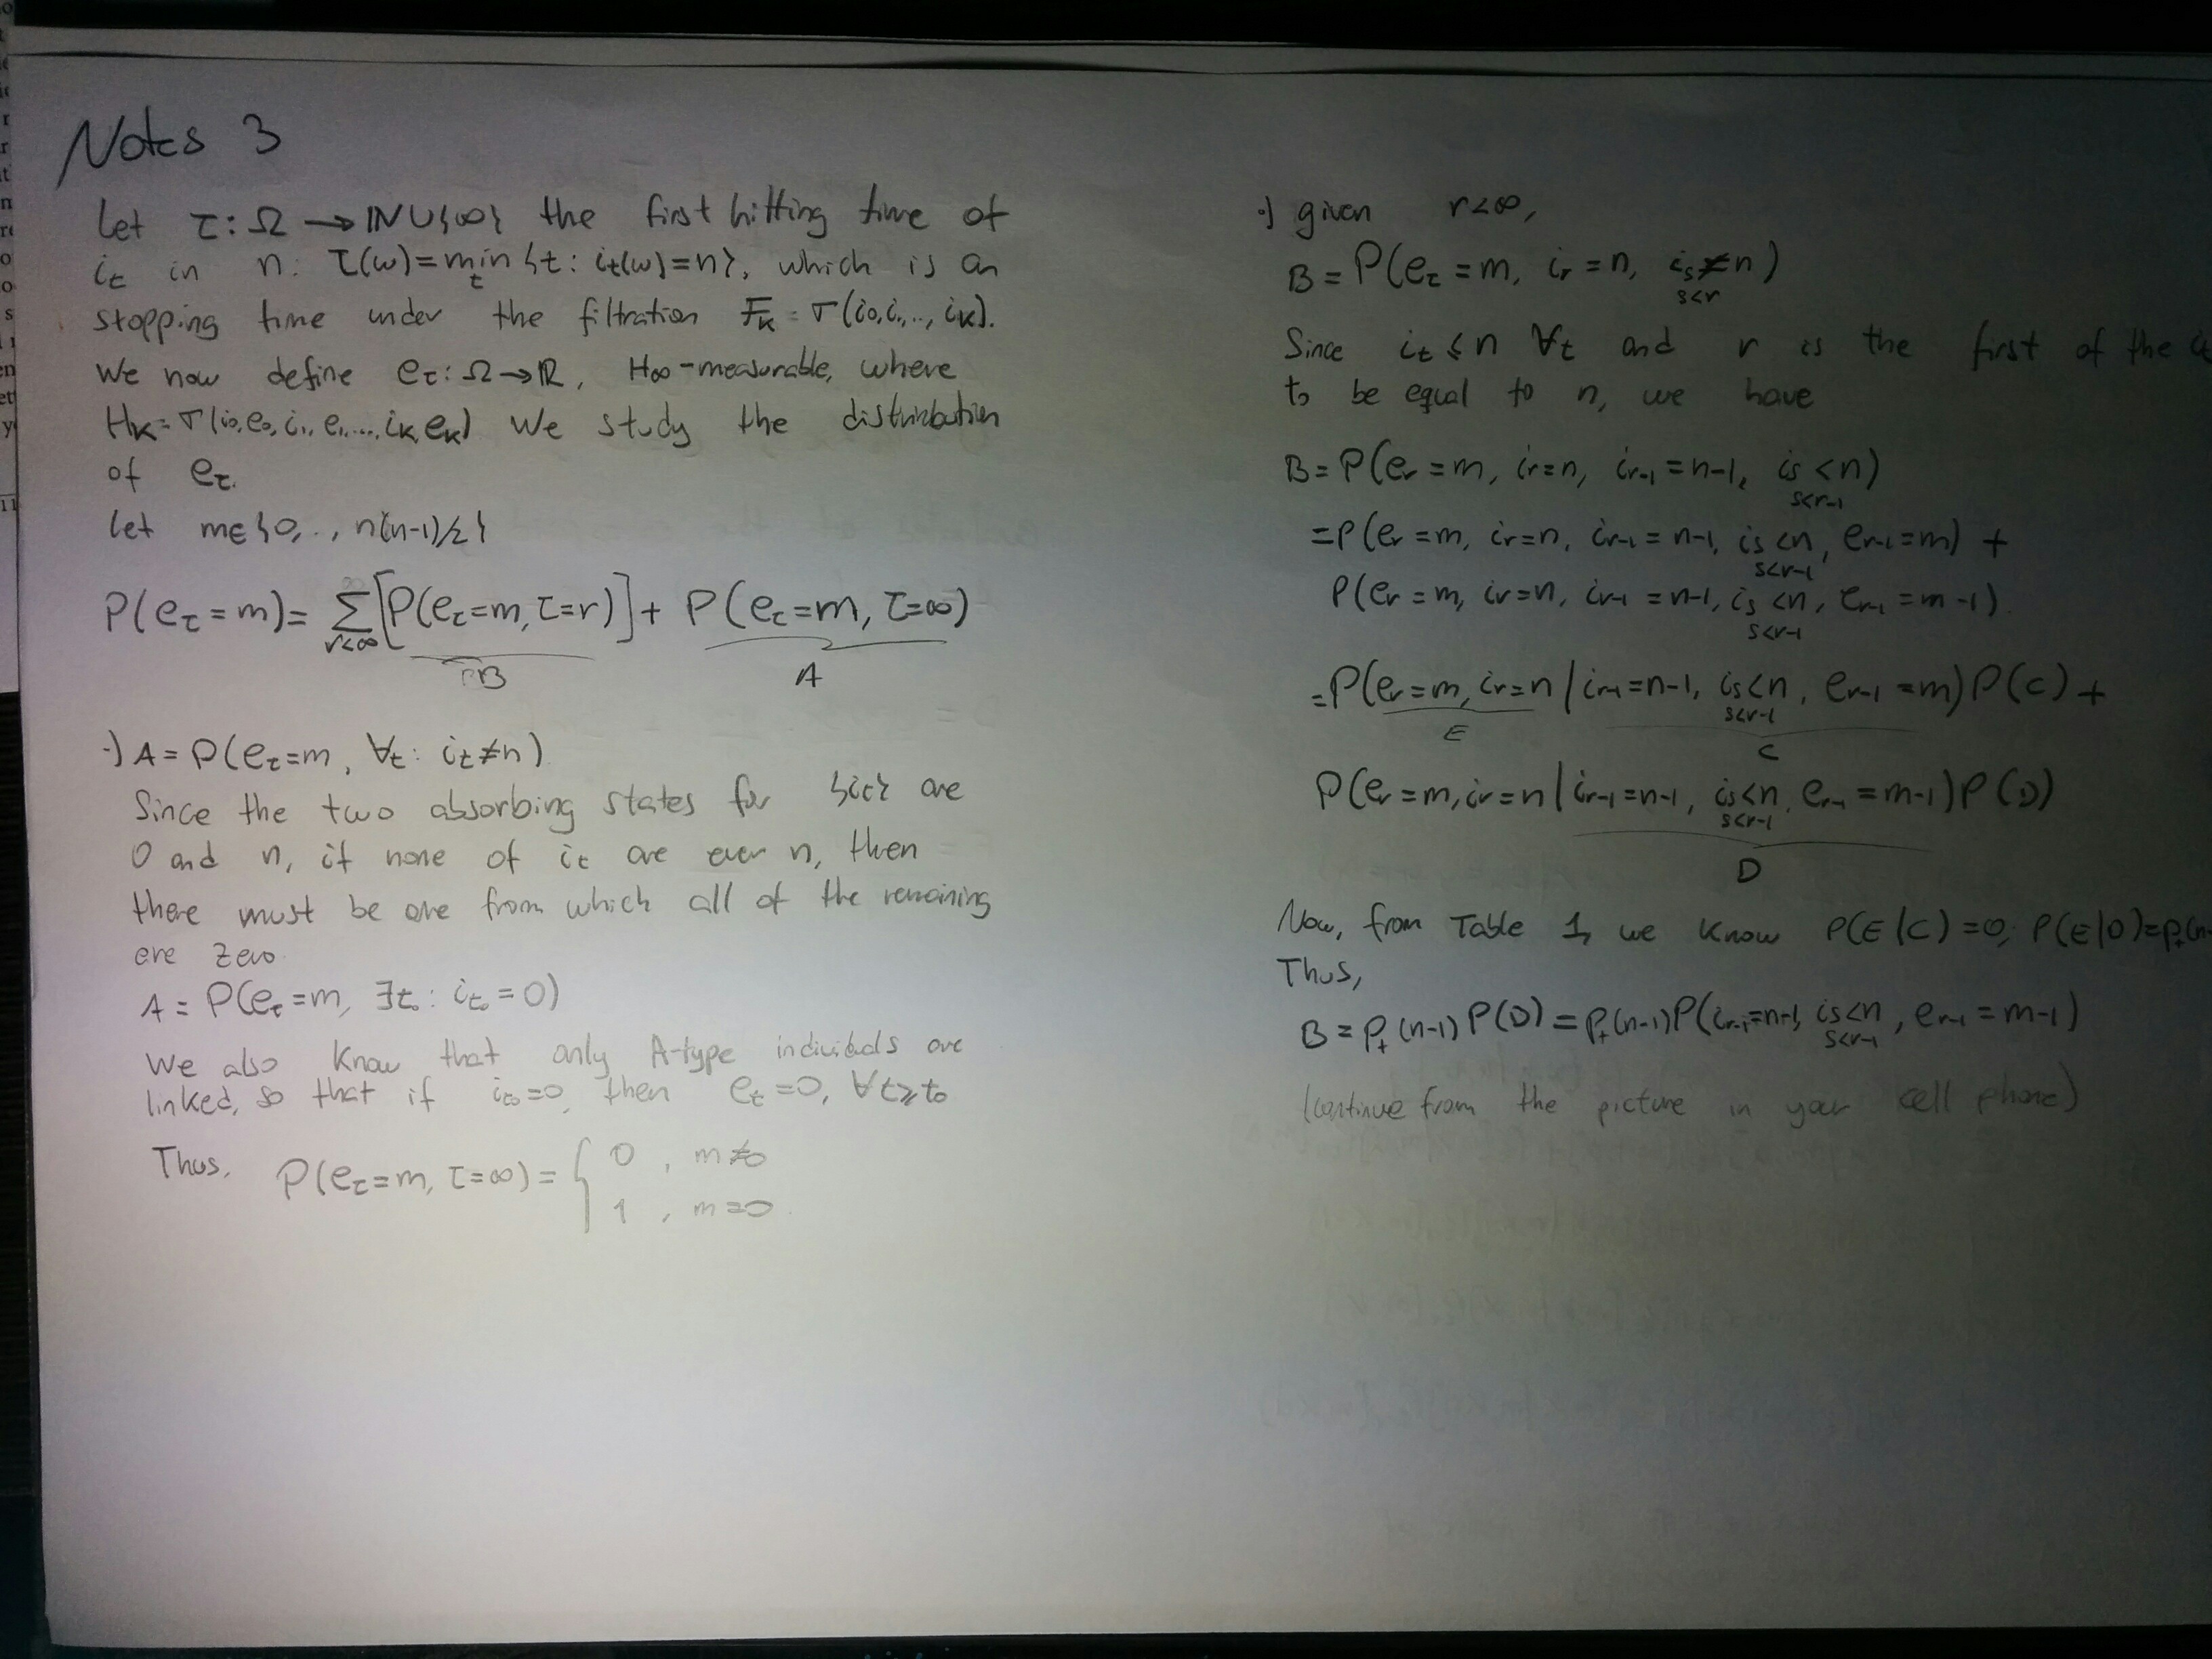 Notes 3
Let τ: Ω → ℕ∪{∞} the first hitting time of
i_t in n: τ(ω) = min_t {t: i_t(ω) = n}, which is an
stopping time under the filtration F_k = σ(i_0, i_1, .., i_k).
We now define e_τ: Ω → ℝ, H_∞-measurable, where
H_k = σ(i_0, e_0, i_1, e_1, ..., i_k, e_k) We study the distribution
of e_τ.
Let m∈{0, .., n(n-1)/2}
P(e_τ = m) = Σ_{r<∞} [P(e_τ=m, τ=r)] + P(e_τ=m, τ=∞)
B A
·) A = P(e_τ=m, ∀t: i_t ≠ n)
Since the two absorbing states for {i_t} are
0 and n, if none of i_t are ever n, then
there must be one from which all of the remaining
are zero.
A = P(e_τ=m, ∃t_0: i_{t_0} = 0)
We also know that only A-type individuals are
linked, so that if i_{t_0}=0, then e_t=0, ∀t≥t_0
Thus, P(e_τ=m, τ=∞) = { 0, m≠0
1, m=0
·) given r<∞,
B = P(e_τ = m, i_r = n, i_s ≠ n)
s<r
Since i_t ≤ n ∀t and r is the first of the
to be equal to n, we have
B = P(e_r = m, i_r = n, i_{r-1} = n-1, i_s < n)
s<r-1
= P(e_r = m, i_r = n, i_{r-1} = n-1, i_s < n, e_{r-1} = m) +
s<r-1
P(e_r = m, i_r = n, i_{r-1} = n-1, i_s < n, e_{r-1} = m-1)
s<r-1
= P(e_r = m, i_r = n | i_{r-1} = n-1, i_s < n, e_{r-1} = m) P(C) +
s<r-1
E C
P(e_r = m, i_r = n | i_{r-1} = n-1, i_s < n, e_{r-1} = m-1) P(D)
s<r-1
D
Now, from Table 1, we know P(E|C) = 0, P(E|D) = p_+(n-
Thus,
B = p_+(n-1) P(D) = p_+(n-1) P(i_{r-1} = n-1, i_s < n, e_{r-1} = m-1)
s<r-1
(continue from the picture in your cell phone)